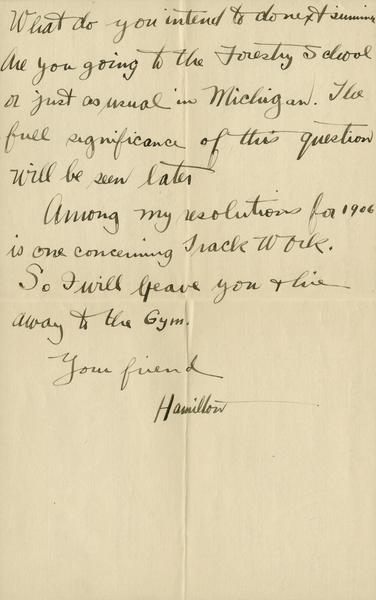 What do you intend to do next summer
Are you going to the Forestry School
or just as usual in Michigan. The
full significance of this question
will be seen later
Among my resolutions for 1906
is one concerning Track Work.
So I will leave you & hie
away to the Gym.
Your friend
Hamilton